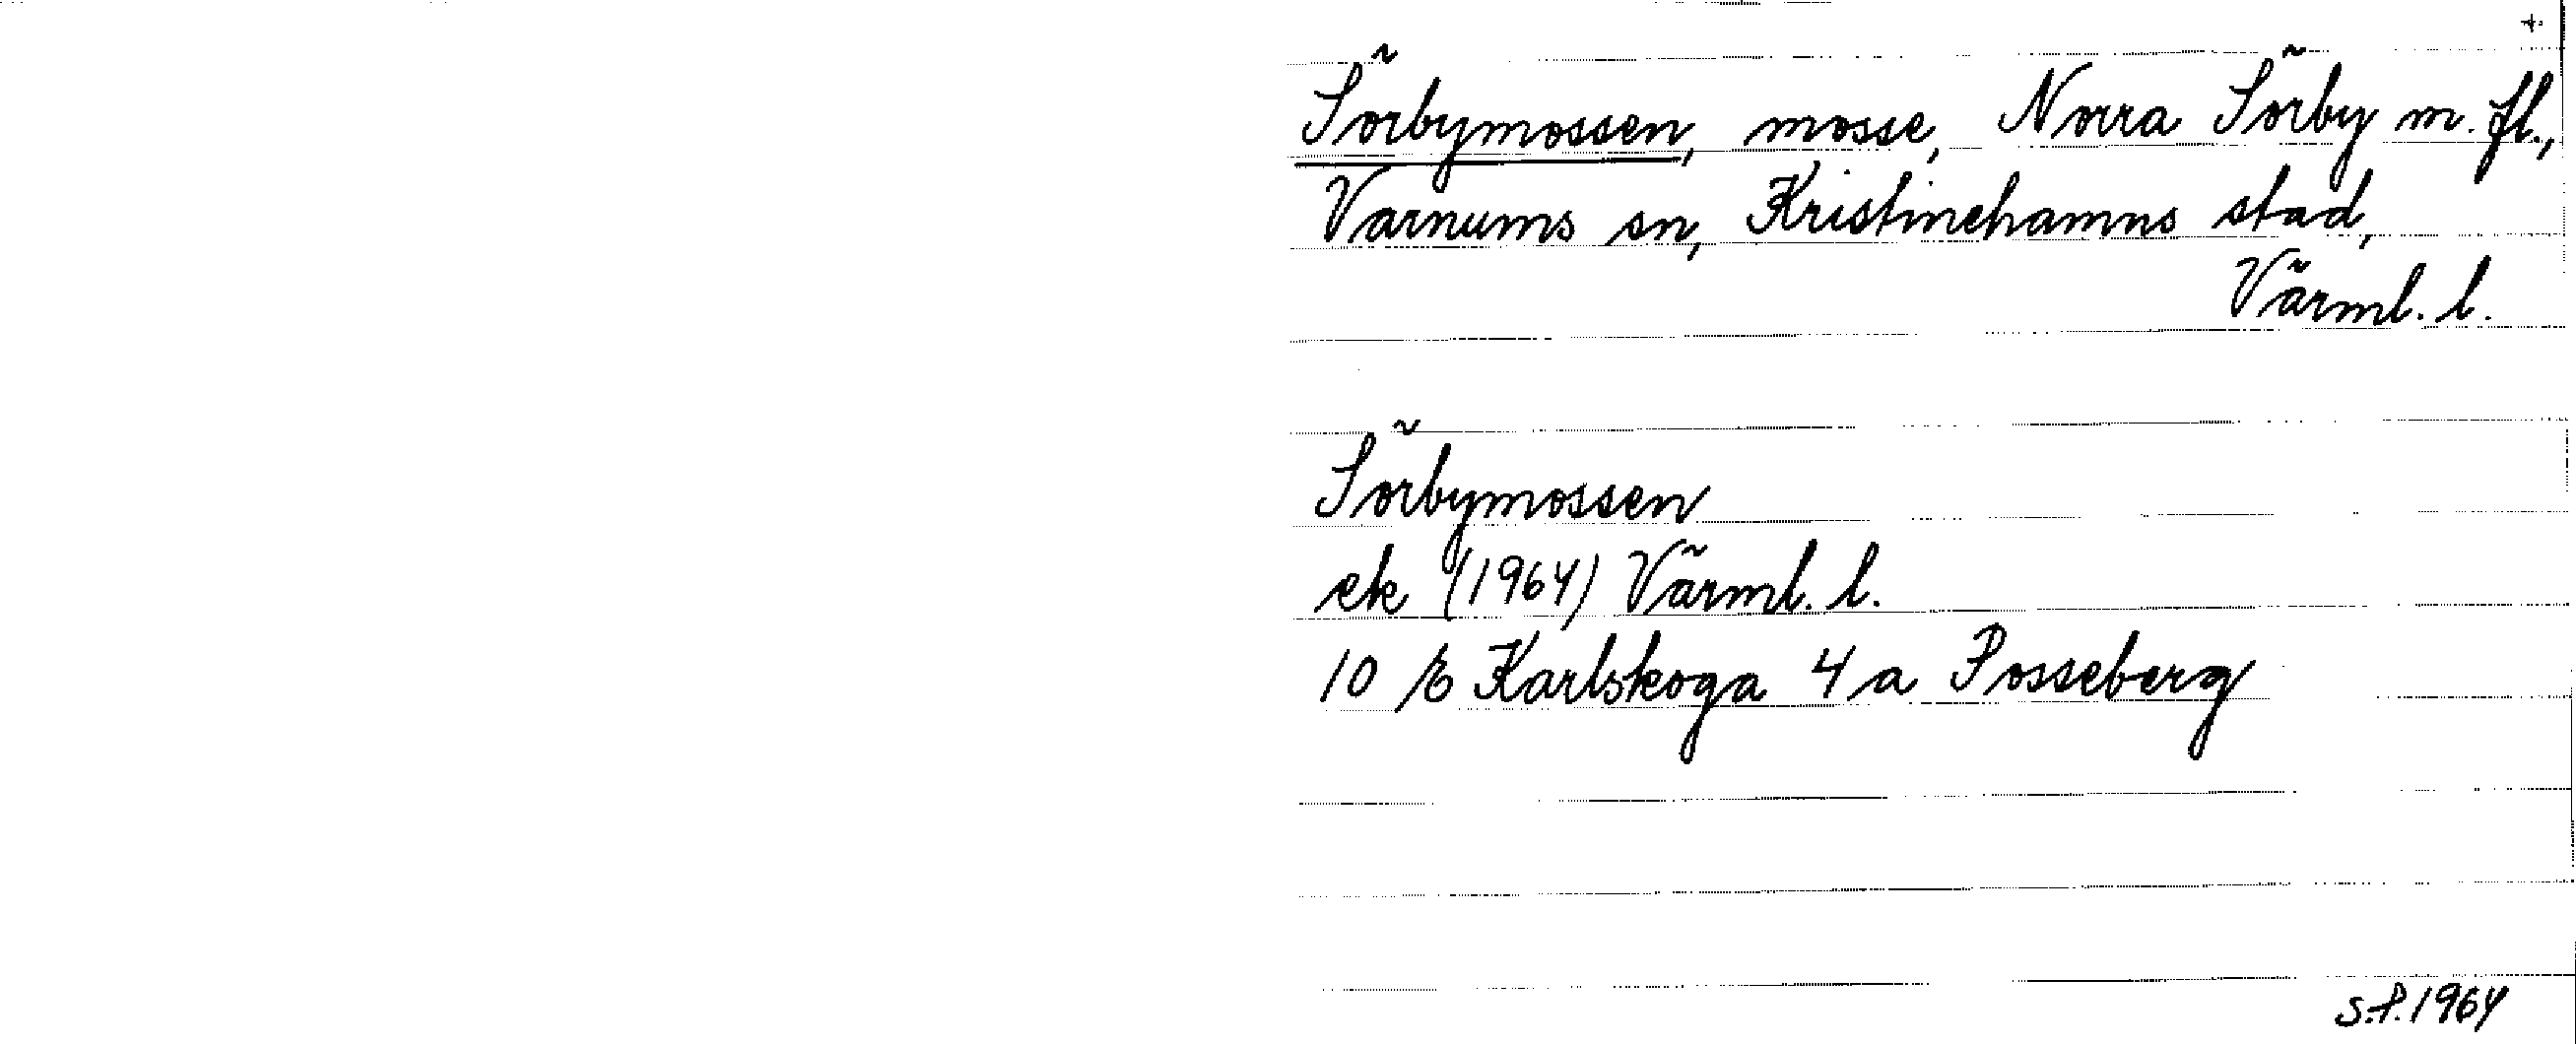 +.
Sörbymossen, mosse, Norra Sörby m. fl.,
Varnums sn, Kristinehamns stad,
Värml. l.
Sörbymossen
ek (1964) Värml. l.
10 E Karlskoga 4 a Posseberg
S.P. 1964